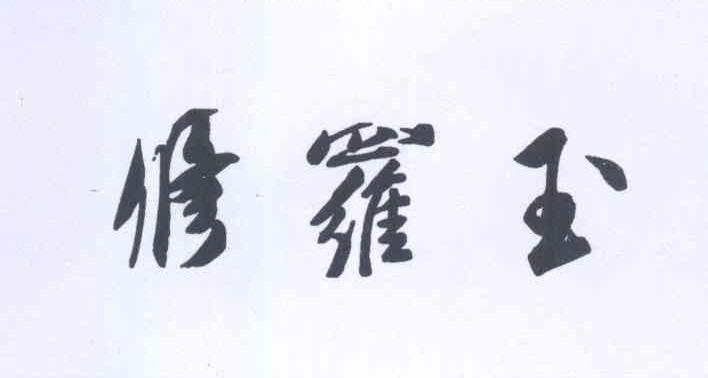 修羅玉